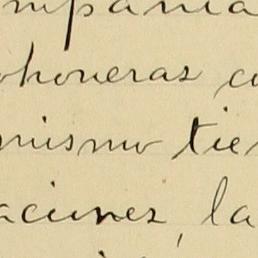 mpania
ohoneras cu
mismo tie
aciones, la